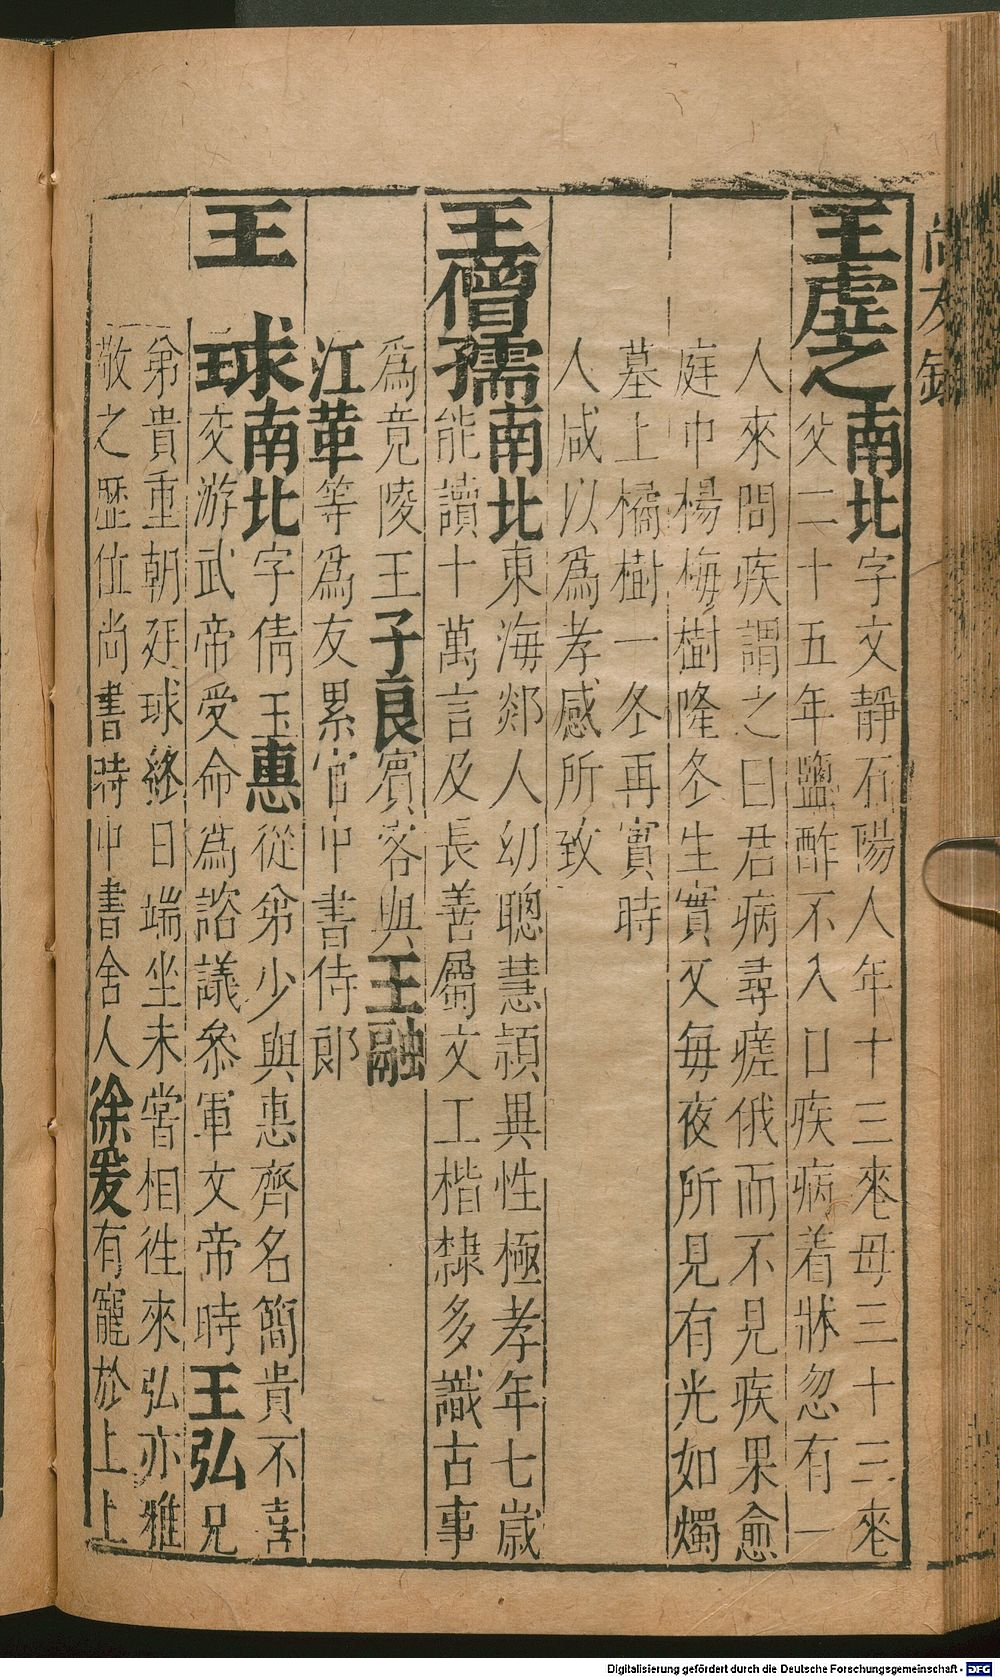 王虛之南北字文靜石陽人年十三喪母三十三喪
父二十五年鹽酢不入口疾病着牀忽有一
人來問疾謂之曰君病尋瘥俄而不見疾果愈
庭中楊梅樹隆冬生實又每夜所見有光如燭
墓上橘樹一冬再實時
人咸以為孝感所致
王僧孺南北東海郯人幼聰慧穎異性極孝年七歲
能讀十萬言及長善屬文工楷隸多識古事
為竟陵王子良賓客與王融
江革等為友累官中書侍郎
王球南北字倩玉惠從弟少與惠齊名簡貴不喜
交游武帝受命為諮議參軍文帝時王弘兄
弟貴重朝廷球終日端坐未嘗相徃來弘亦雅
敬之歷位尚書時中書舍人徐爰有寵於上上
尚友錄
Digitalisierung gefördert durch die Deutsche Forschungsgemeinschaft - DFG